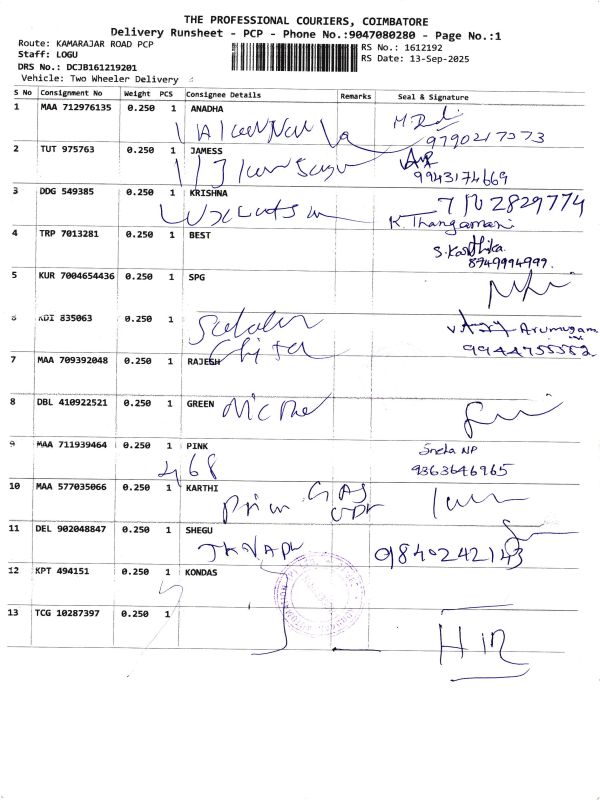 THE PROFESSIONAL COURIERS, COIMBATORE
Delivery Runsheet - PCP - Phone No.:9047080280 - Page No.:1
Route: KAMARAJAR ROAD PCP
Staff: LOGU
DRS No.: DCJB161219201
Vehicle: Two Wheeler Delivery
RS No.: 1612192
RS Date: 13-Sep-2025
S No Consignment No Weight PCS Consignee Details Remarks Seal & Signature
1 MAA 712976135 0.250 1 ANADHA
9790217073
2 TUT 975763 0.250 1 JAMESS
9943174669
3 DDG 549385 0.250 1 KRISHNA
K. Thangamani
4 TRP 7013281 0.250 1 BEST
S. Karthika.
8949994999.
5 KUR 7004654436 0.250 1 SPG
6 KDI 835063 0.250 1
Arumugam
9944755552
7 MAA 709392048 0.250 1 RAJESH
8 DBL 410922521 0.250 1 GREEN
9 MAA 711939464 0.250 1 PINK
468
Sneha NP
9363646965
10 MAA 577035066 0.250 1 KARTHI
11 DEL 902048847 0.250 1 SHEGU
9840242143
12 KPT 494151 0.250 1 KONDAS
13 TCG 10287397 0.250 1